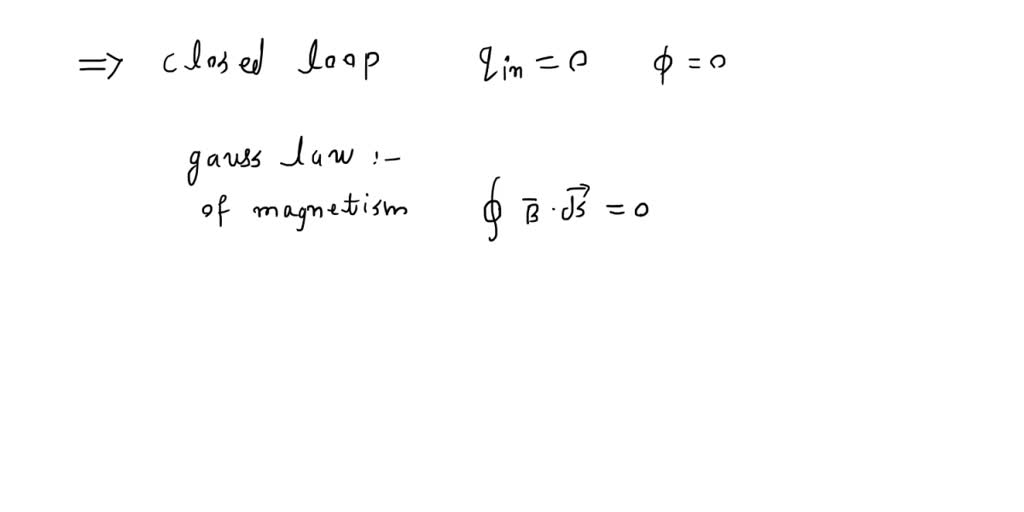 ⇒ closed loop q_in = 0 ϕ = 0
gauss law :-
of magnetism ∮ B̄ · d⃗s = 0